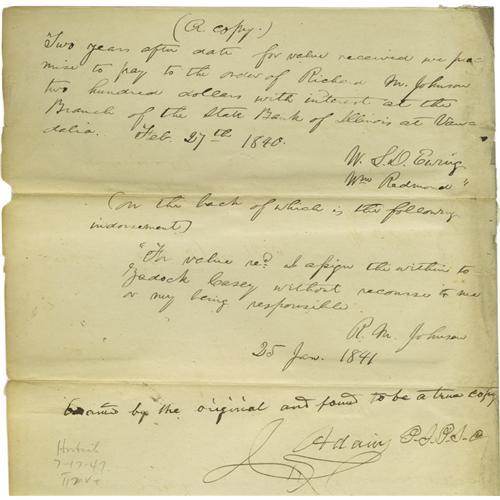 (A copy.)
Two years after date for value received we pro-
mise to pay to the order of Richard M. Johnson
two hundred dollars with interest at the
Branch of the State Bank of Illinois at Van-
dalia. Feb. 27th 1840.
W. L. D. Ewing
Wm Redmond "
(on the back of which is the following
indorsement)
"For value recd I assign the within to
Zadock Casey without recourse to me
or my being responsible
R. M. Johnson
25 Jan. 1841
by the original and found to be a true copy
J Adams
7-17-47.